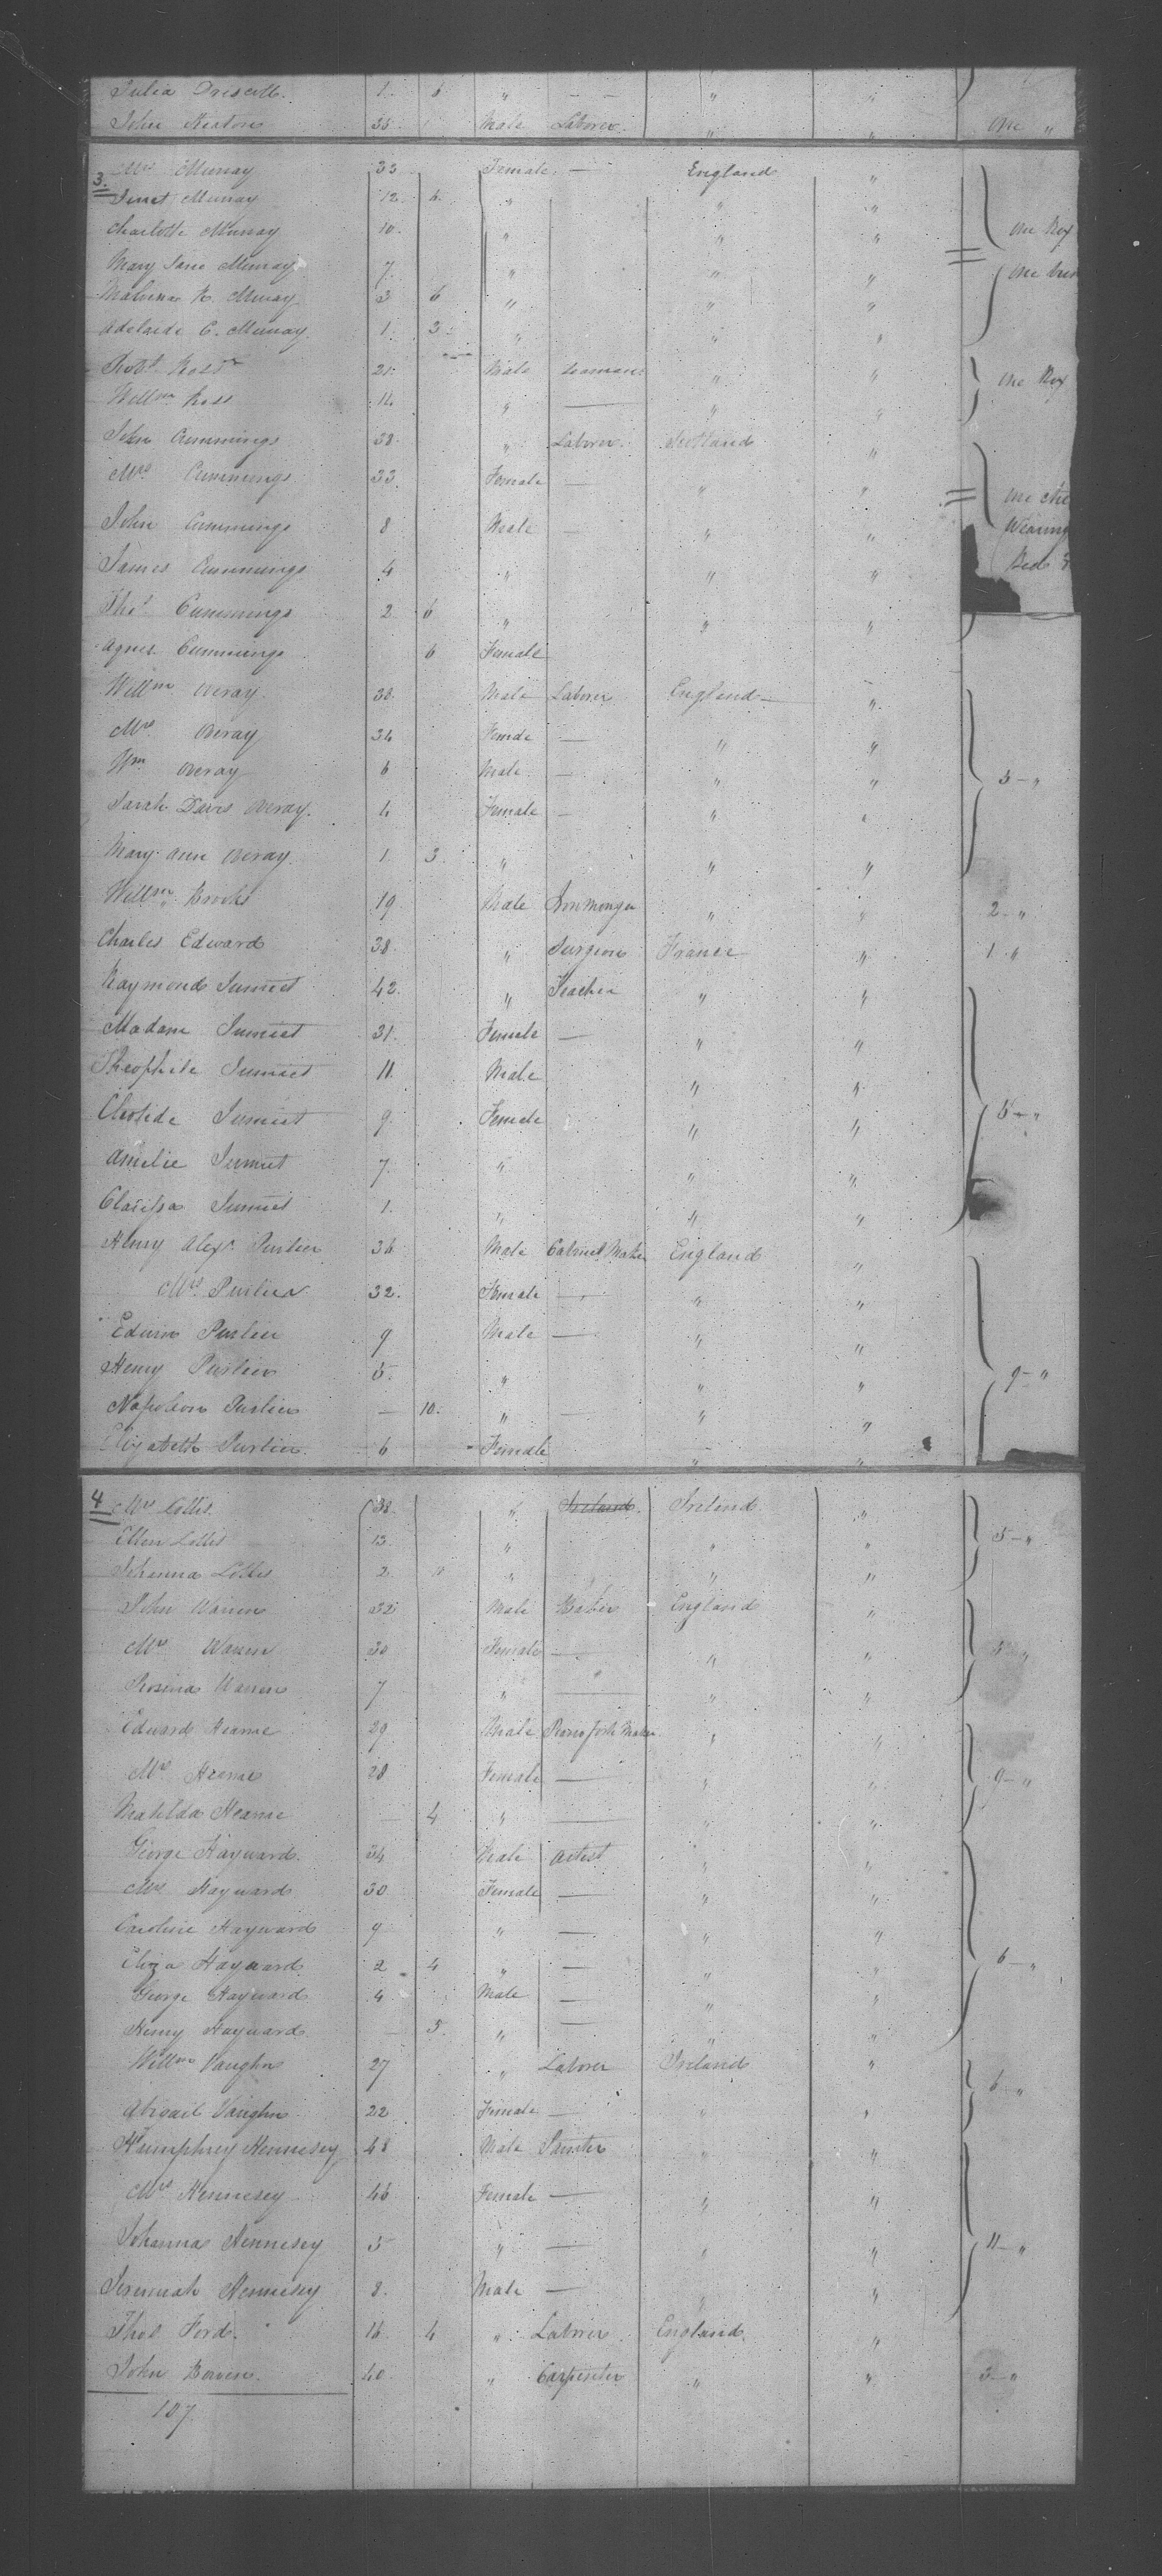 Julia Driscoll. 1. 6 " — — " "
John Keaton 35. Male Laborer. " " One "
3.
Mrs Murray 33 Female. — England "
Janet Murray 12. 6. " " "
Charlotte Murray 10. " " " One Box
Mary Jane Murray 7. " " "
Malvina K. Murray 3 6 " " "
Adelaide C. Murray 1. 3 " " "
Robt Ross 21. Male Seaman " " One Box
Willm Ross 14 " — " "
John Cummings 38. " Laborer. Scotland "
Mrs Cummings 33. Female — " "
John Cummings 8 Male — " " Wearing
James Cummings 4 " " " Bed
Thos Cummings 2 6 " " "
Agnes Cummings 6 Female
Willm Overay. 38. Male Laborer England — ".
Mrs Overay 34 Female — " "
Wm Overay 6 Male. — " " 5 — "
Sarah Overay. 4 Female — " "
Mary Ann Overay. 1. 3. " " "
Willm Brooks 19 Male Iron Monger " " 2 — "
Charles Edward 38. " Surgeon France " 1. "
Raymond Sumiet 42. " Teacher " "
Madam Sumiet 31. Female — " "
Theophile Sumiet 11. Male " "
Clotide Sumiet 9. Female " " "
Amelie Sumiet 7. " " "
Clarissa Sumiet 1. " " "
Henry Alexr. Purlier 36 Male Cabinet Maker England "
Mrs Purlier 32. Female — " "
Edwin Purlier 9 Male — " "
Henry Purlier 5. " " " 9 — "
Napoleon Purlier — 10. " — " "
Elizabeth Purlier. 6 Female " "
4
Mrs Lottis. 38. " Ireland. Ireland "
Ellen Lottis 13. " " " 5 — "
Johanna Lottis 2. " " "
John Warren 32 Male Baker England "
Mrs Warren 30 Female — " "
Rosina Warren 7 " — " "
Edward Hearne 29 Male Piano forte Maker " "
Mrs Hearne 28 Female — " " 9 — "
Matilda Hearne — 4 " — " "
George Hayward. 34 Male Artist " "
Mrs Hayward 30 Female — " "
Caroline Hayward 9 " — " "
Eliza Hayward 2 4 " — " " 6 — "
George Hayward 4 Male — " "
Henry Hayward. — 5. " — " "
Willm Vaughn 27 " Laborer Ireland "
Abigail Vaughn 22 Female — " " 6 "
Humphrey Hennesey 48 Male Painter " "
Mrs Hennesey 46 Female — " "
Johanna Hennesey 5 " — " " 11 — "
Jeremiah Hennesey 8. Male — " "
Thos Ford. 16 4 " Laborer. England. "
John Bowen. 40. " Carpenter " " 3 — "
107